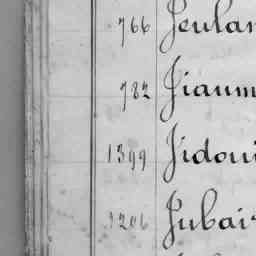 766 Jeulan
782 Jiaum
1399 Jidoui
1206 Jubai